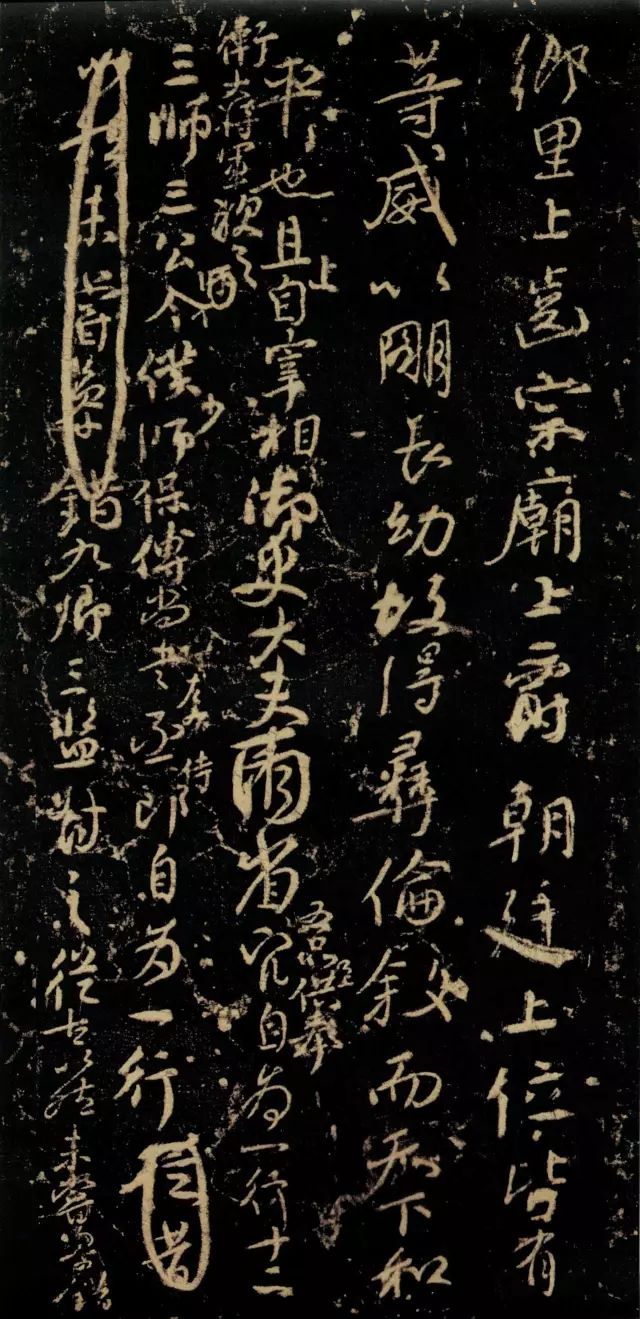 鄉里上齒宗廟上爵朝廷上位皆有
等威以明長幼故得彝倫叙而天下和
平也且上自宰相御史大夫兩省五品已上供奉官自為一行十二
衛大將軍次之
三師三公令僕少師保傅尚書左右丞侍郎自為一行
未嘗參錯九卿三監對之從古以然未嘗參錯